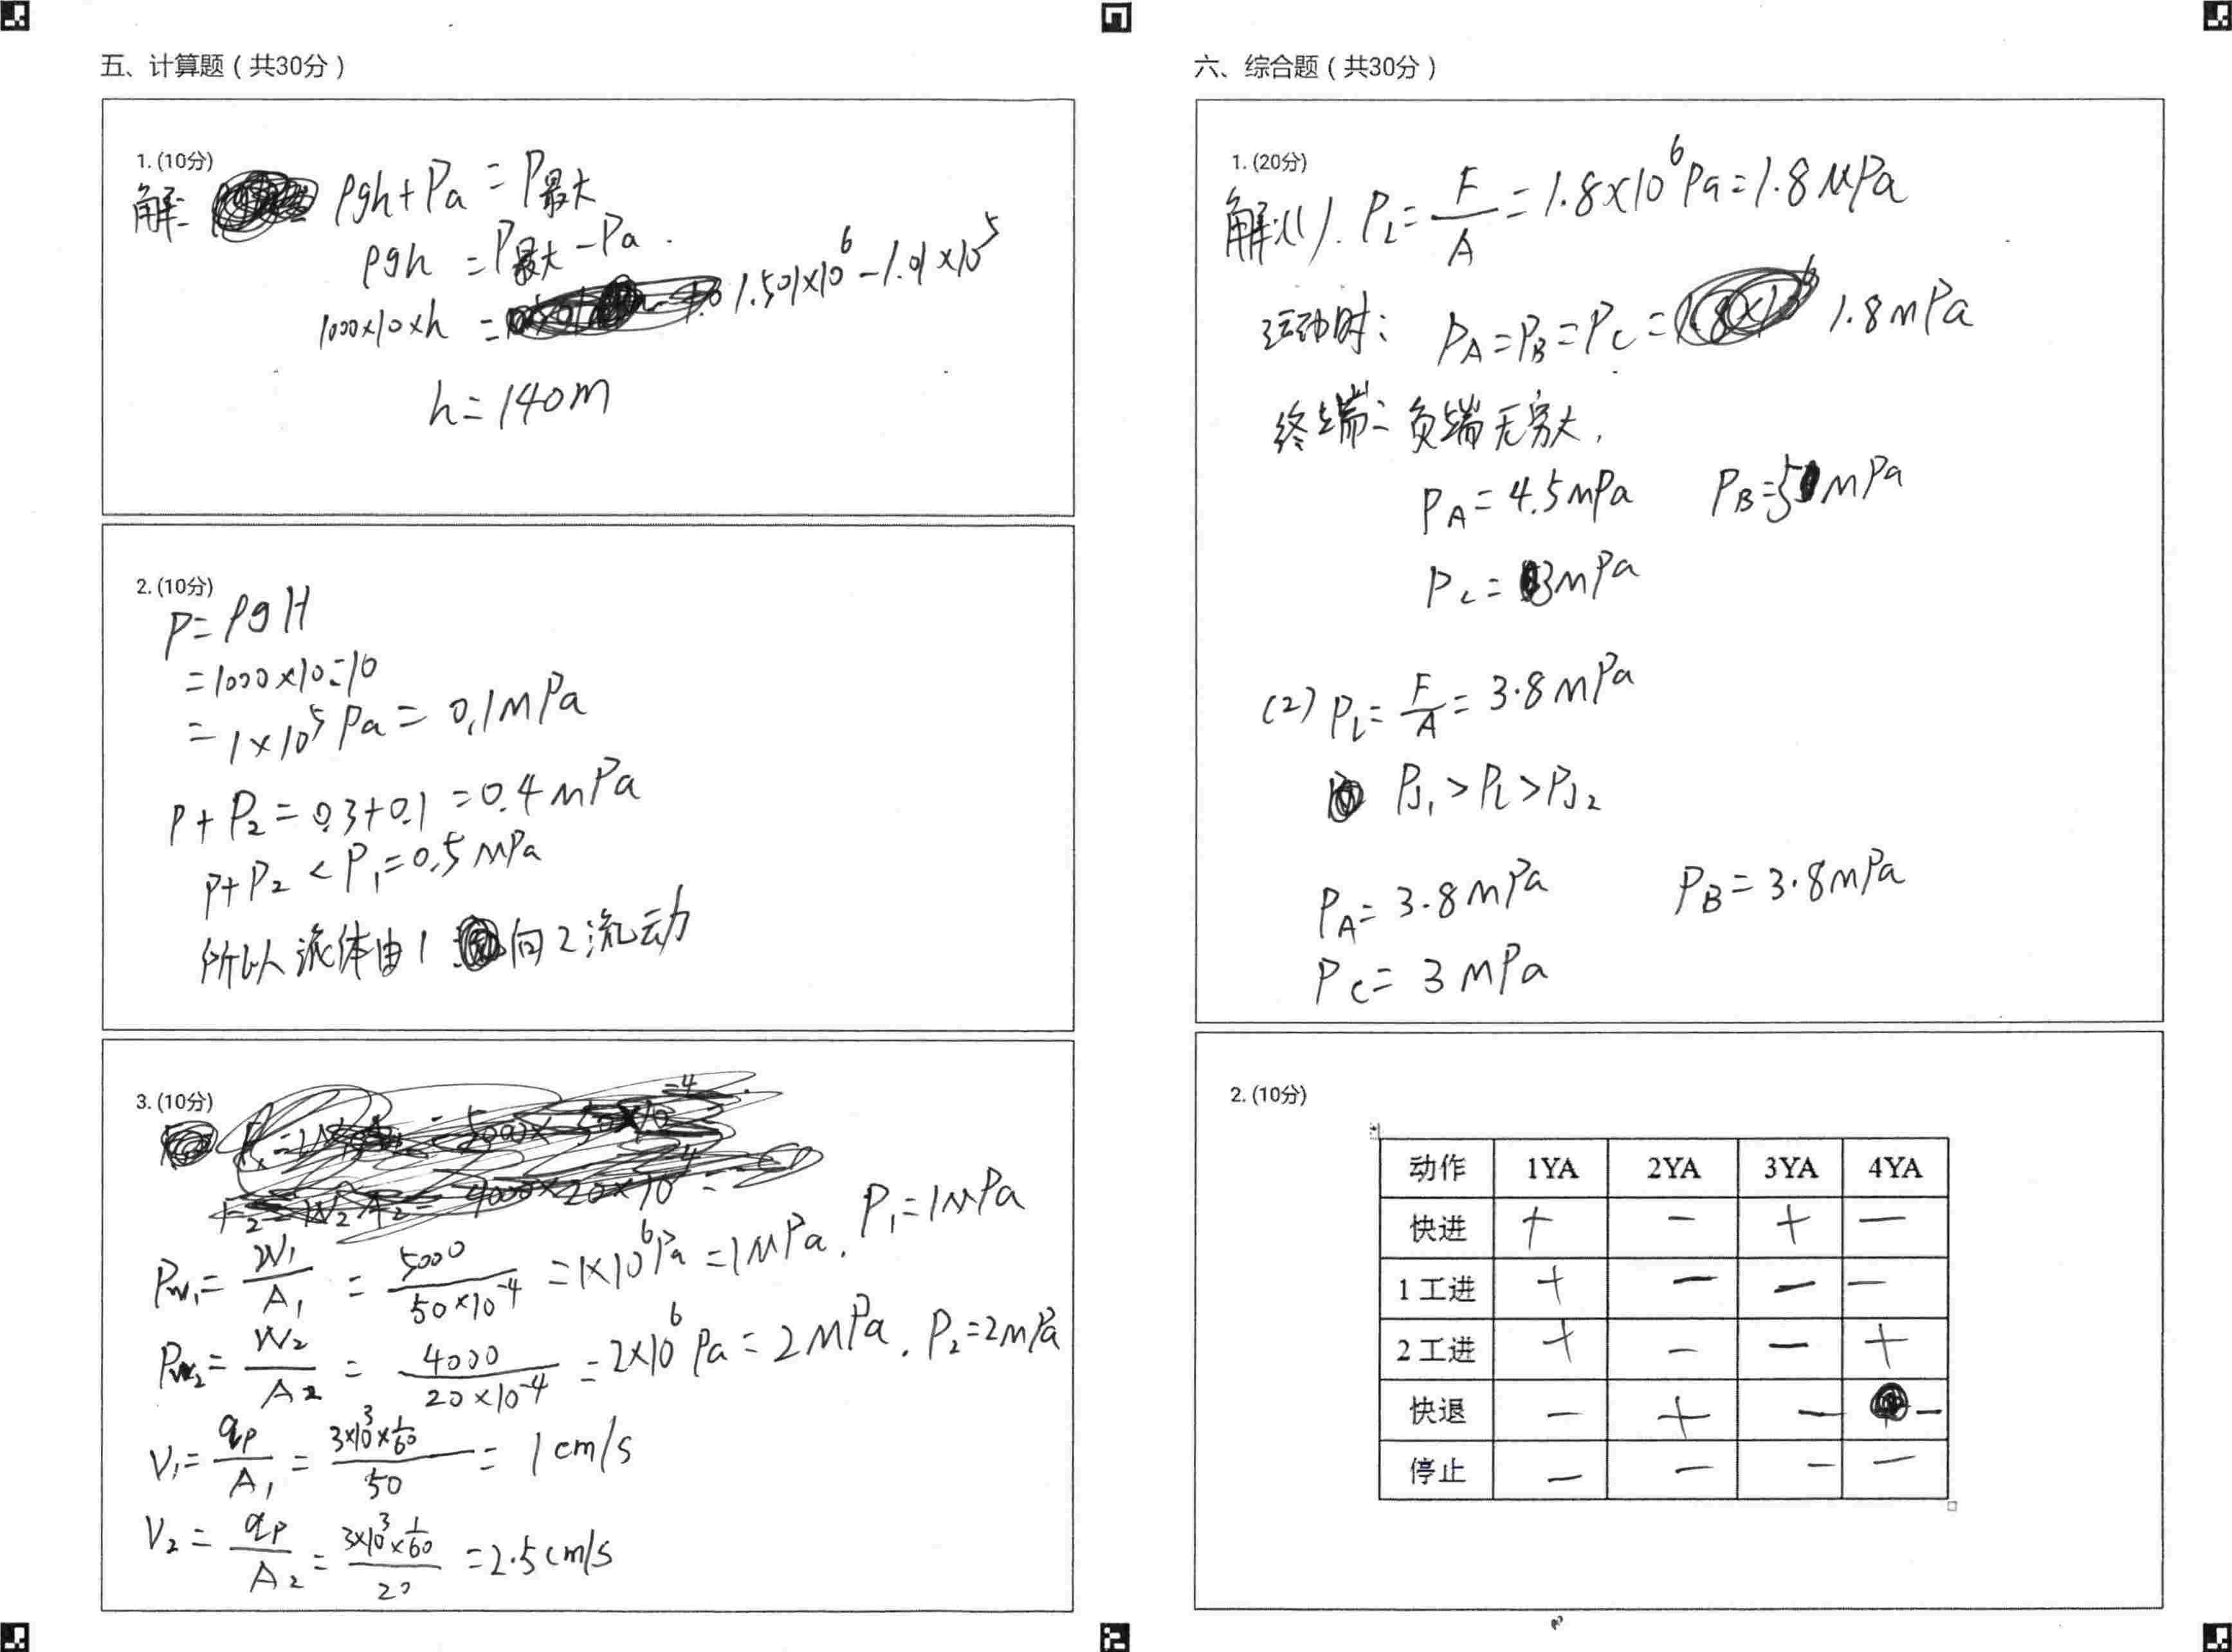 五、计算题（共30分）
1.(10分)
解: ρgh+Pa=P最大
ρgh=P最大-Pa.
1000×10×h=1.501×10⁶-1.01×10⁵
h=140m
2.(10分)
P=ρgH
=1000×10×10
=1×10⁵Pa=0.1MPa
P+P₂=0.3+0.1=0.4MPa
P+P₂<P₁=0.5MPa
所以流体由1向2流动
3.(10分)
Pw₁=W₁/A₁=5000/50×10⁻⁴=1×10⁶Pa=1MPa. P₁=1MPa
Pw₂=W₂/A₂=4000/20×10⁻⁴=2×10⁶Pa=2MPa. P₂=2MPa
V₁=qp/A₁=3×10³×1/60/50=1cm/s
V₂=qp/A₂=3×10³×1/60/20=2.5cm/s
六、综合题（共30分）
1.(20分)
解:(1). PL=F/A=1.8×10⁶Pa=1.8MPa
运动时: PA=PB=PC=1.8MPa
终端: 负端无穷大,
PA=4.5MPa PB=5MPa
PC=3MPa
(2) PL=F/A=3.8MPa
PJ₁>PL>PJ₂
PA=3.8MPa PB=3.8MPa
PC=3MPa
2.(10分)
动作 1YA 2YA 3YA 4YA
快进 + - + -
1工进 + - - -
2工进 + - - +
快退 - + - -
停止 - - - -